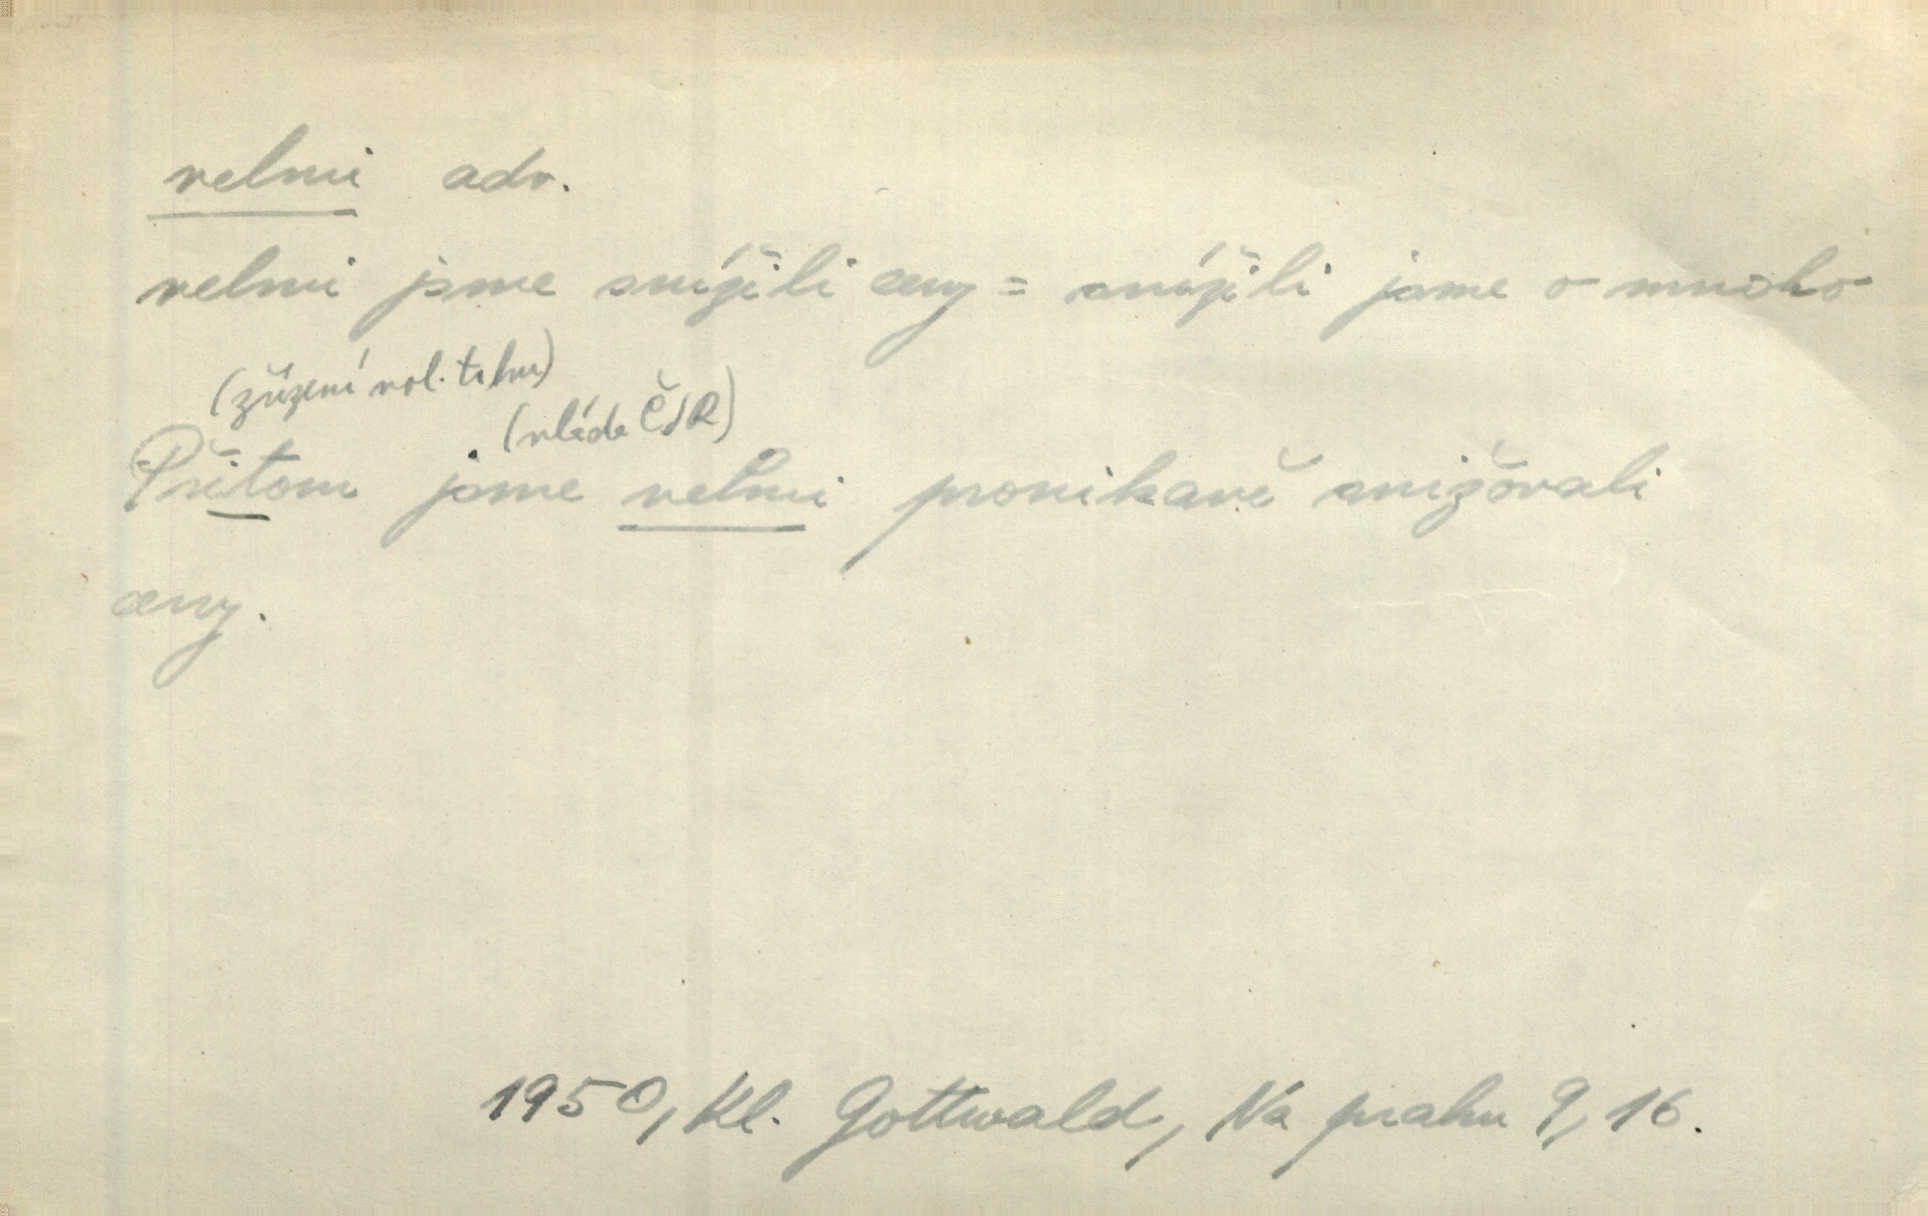 velmi adv.
velmi jsme snížili ceny = snížili jsme o mnoho
(zřízení vol. trhu)
(vláda ČSR)
Přitom jsme velmi pronikavě snižovali
ceny.
1950, Kl. Gottwald, Na prahu 9, 16.